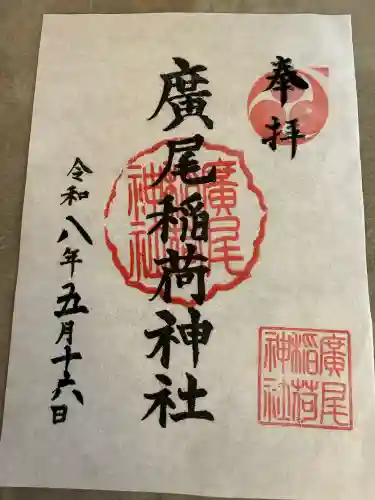 奉拝
廣尾稲荷神社
令和八年五月十六日
廣尾
稲荷
神社
廣尾
稲荷
神社